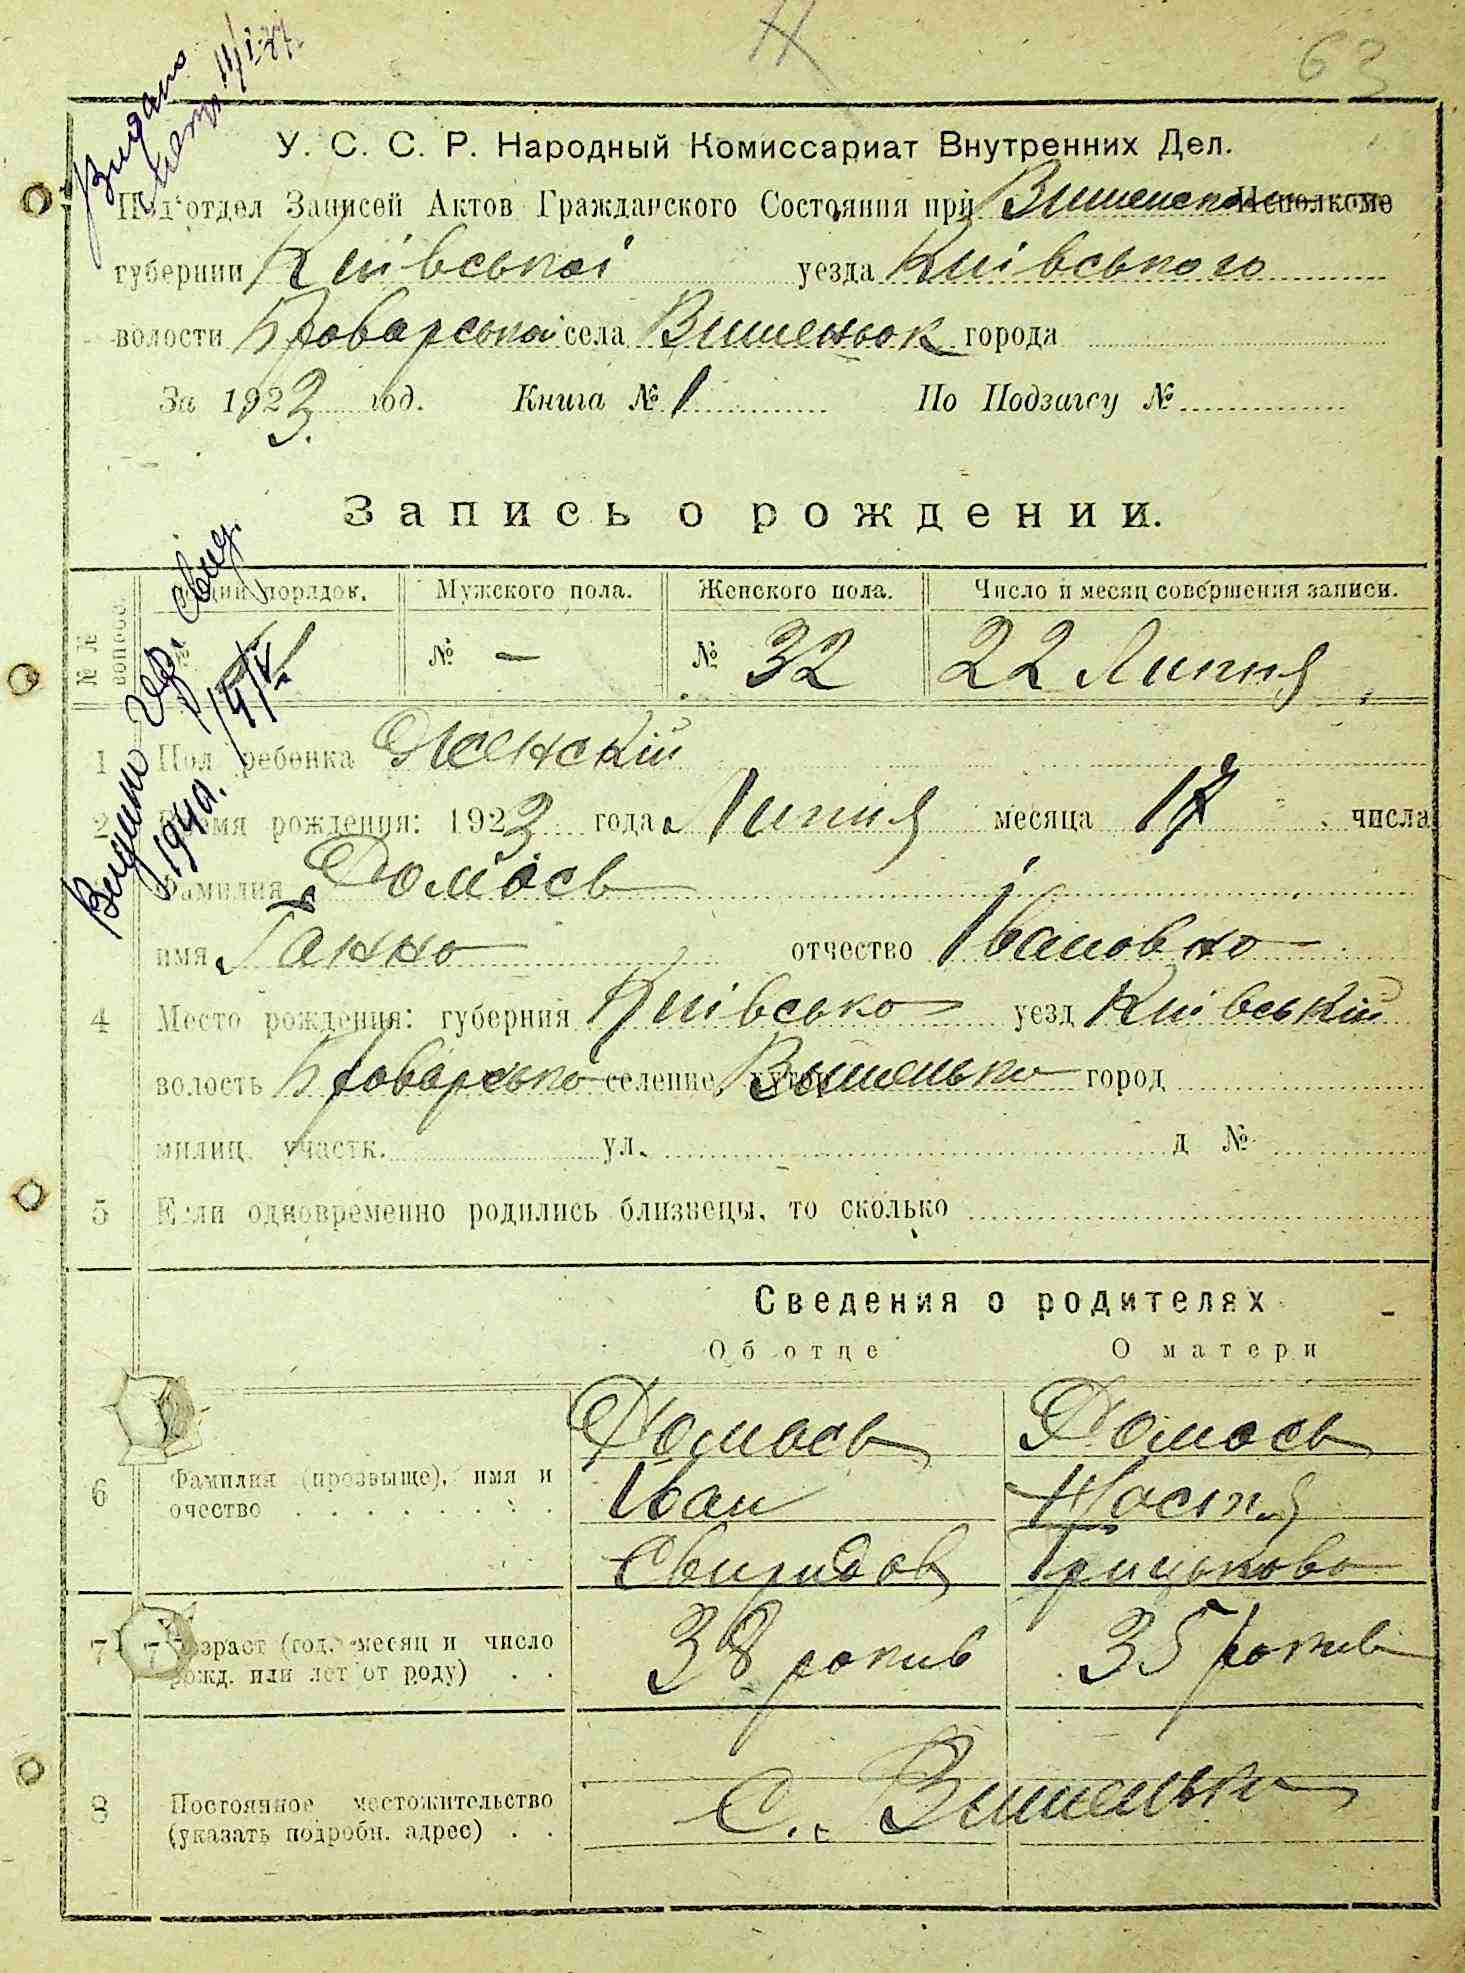 Н 63
Видано
У. С. С. Р. Народный Комиссариат Внутренних Дел.
Подотдел Записей Актов Гражданского Состояния при Вишенском Исполкоме
губернии Київської уезда Київського
волости Броварської села Вишеньок города
За 1923 год. Книга № 1 По Подзагсу №
Запись о рождении.
№№ вопроса. Общий порядок. Мужского пола. Женского пола. Число и месяц совершения записи.
№ № — № 32 22 Липня
1 Пол ребенка Женскій
2 Время рождения: 1923 года Липня месяца 17 числа
Фамилия Домась
имя Ганна отчество Івановна
4 Место рождения: губерния Київська уезд Київський
волость Броварська селение, хутор Вишеньки город
милиц. участк. ул. д №
5 Если одновременно родились близнецы, то сколько
Сведения о родителях
Об отце О матери
Домась Домась
6 Фамилия (прозвыще), имя и очество Іван Настя
Свиридов Грицькова
7 Возраст (год, месяц и число рожд. или лет от роду) 38 років 35 років
8 Постоянное местожительство (указать подробн. адрес) С. Вишеньки
Видано свид.
1940.